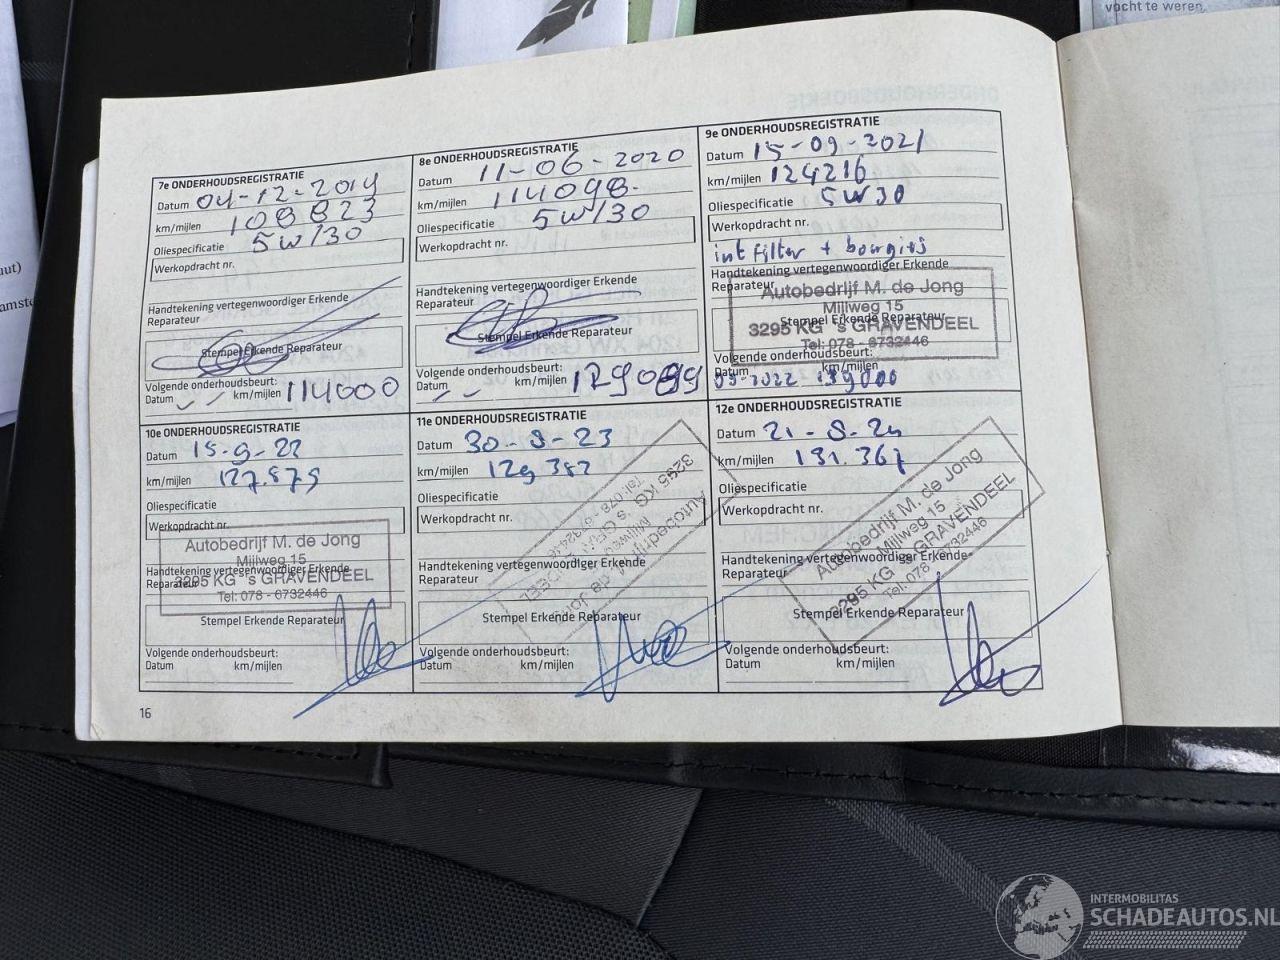 vocht te weren.
7e ONDERHOUDSREGISTRATIE
Datum 04-12-2019
km/mijlen 108823
Oliespecificatie 5w/30
Werkopdracht nr.
Handtekening vertegenwoordiger Erkende
Reparateur
Stempel Erkende Reparateur
Volgende onderhoudsbeurt:
Datum km/mijlen 114000
8e ONDERHOUDSREGISTRATIE
Datum 11-06-2020
km/mijlen 114098.
Oliespecificatie 5w/30
Werkopdracht nr.
Handtekening vertegenwoordiger Erkende
Reparateur
Stempel Erkende Reparateur
Volgende onderhoudsbeurt:
Datum km/mijlen
9e ONDERHOUDSREGISTRATIE
Datum 15-09-2021
km/mijlen 124216
Oliespecificatie 5w30
Werkopdracht nr.
int filter + bougies
Handtekening vertegenwoordiger Erkende
Reparateur
Autobedrijf M. de Jong
Mijlweg 15
Stempel Erkende Reparateur
3295 KG 's GRAVENDEEL
Tel: 078 - 6732446
Volgende onderhoudsbeurt:
Datum km/mijlen
09-2022 139000
10e ONDERHOUDSREGISTRATIE
Datum 15-9-22
km/mijlen 127.875
Oliespecificatie
Werkopdracht nr.
Autobedrijf M. de Jong
Mijlweg 15
Handtekening vertegenwoordiger Erkende
Reparateur
3295 KG 's GRAVENDEEL
Tel: 078 - 6732446
Stempel Erkende Reparateur
Volgende onderhoudsbeurt:
Datum km/mijlen
11e ONDERHOUDSREGISTRATIE
Datum 30-8-23
km/mijlen 129 382
Oliespecificatie
Werkopdracht nr.
Autobedrijf M. de Jong
Mijlweg 15
3295 KG 's GRAVENDEEL
Tel: 078 - 6732446
Handtekening vertegenwoordiger Erkende
Reparateur
Stempel Erkende Reparateur
Volgende onderhoudsbeurt:
Datum km/mijlen
12e ONDERHOUDSREGISTRATIE
Datum 21-8-24
km/mijlen 131.367
Oliespecificatie
Werkopdracht nr.
Autobedrijf M. de Jong
Mijlweg 15
3295 KG 's GRAVENDEEL
Tel: 078 - 6732446
Handtekening vertegenwoordiger Erkende
Reparateur
Stempel Erkende Reparateur
Volgende onderhoudsbeurt:
Datum km/mijlen
16
INTERMOBILITAS
SCHADEAUTOS.NL